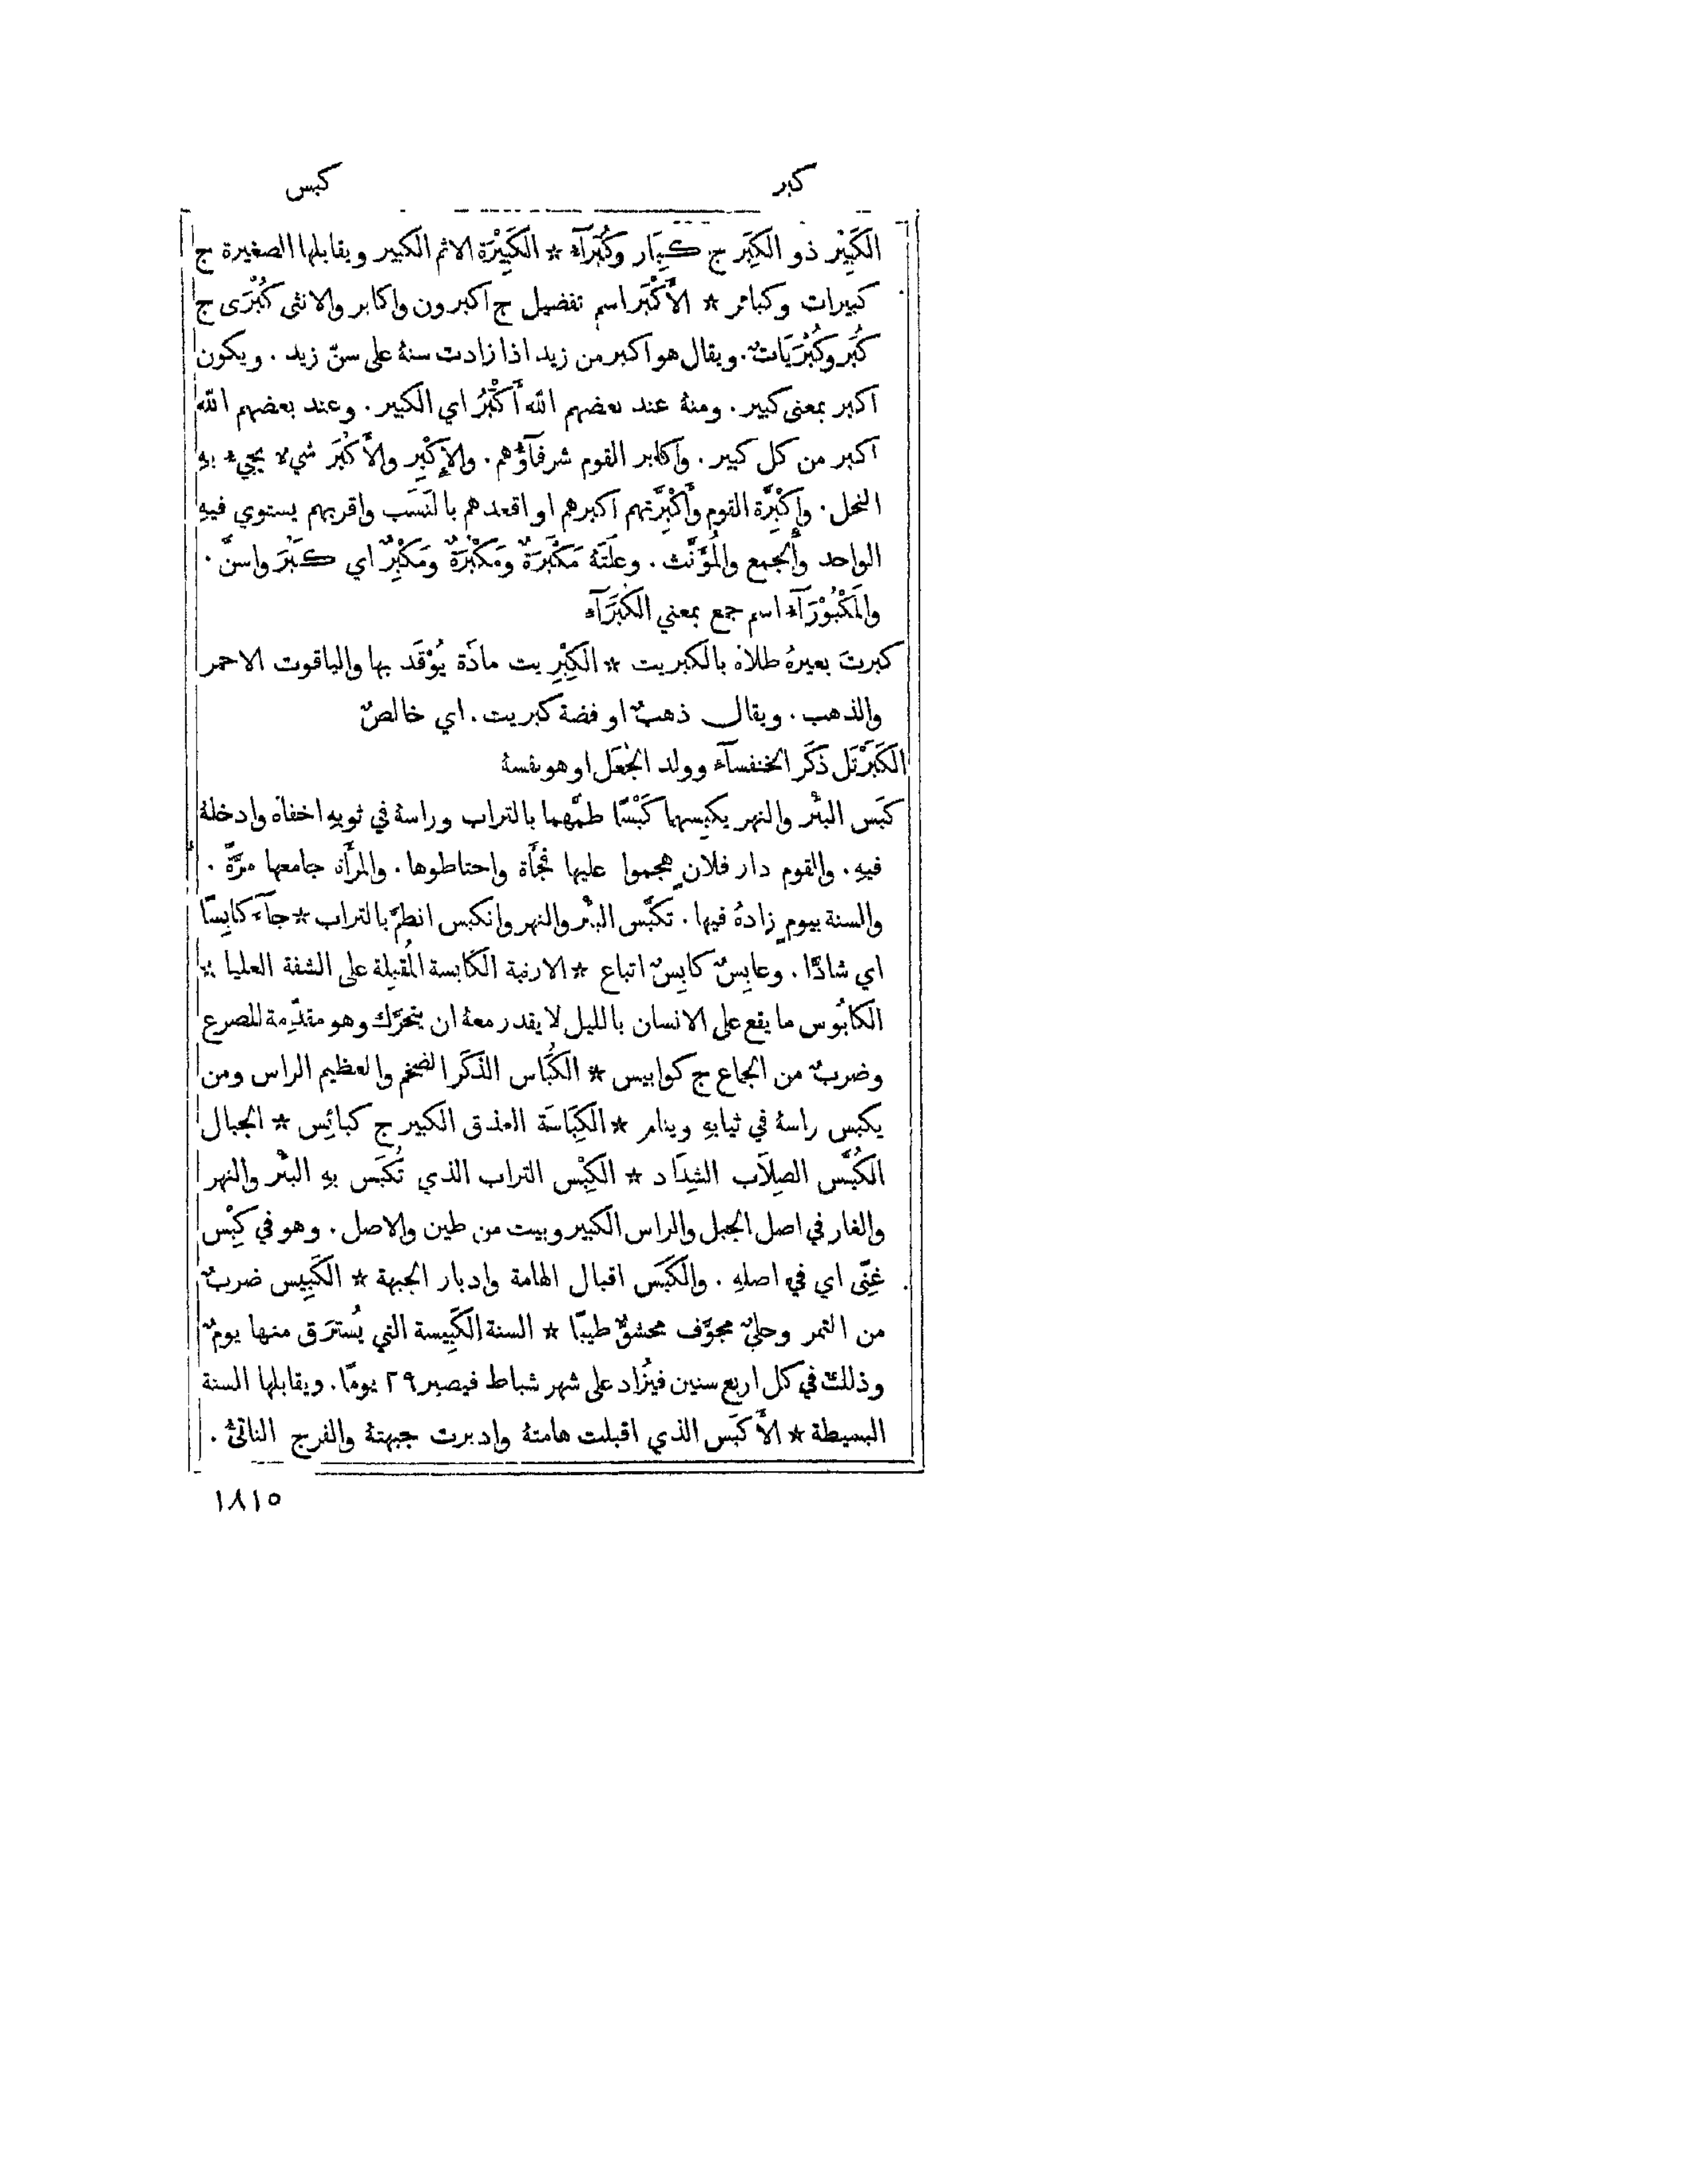 كبر
كبس
الكَبِيْر ذو الكِبَر ج كِبَار وكُبَرَآء * الكَبِيْرَة الاثم الكبير ويقابلها الصغيرة ج
كبيرات وكبائر * الأَكْبَر اسم تفضيل ج اكبرون واكابر والانثى كُبْرَى ج
كُبَر وكُبْرَيَاتٌ. ويقال هو اكبر من زيد اذا زادت سنهُ على سنّ زيد . ويكون
اكبر بمعنى كبير. ومنهُ عند بعضهم الله أَكْبَرُ اي الكبير. وعند بعضهم الله
اكبر من كل كبير . واكابر القوم شرفآؤُهم. والإِكْبِر والأَكْبَر شيء يجيء بهِ
النحل. وإِكْبِرَّة القوم وأَكْبِرَّتهم اكبرهم او اقعدهم بالنَسَب واقربهم يستوي فيهِ
الواحد والجمع والمُؤَنَّث . وعلَتَهُ مَكْبَرَةٌ ومَكْبُرَةٌ ومَكْبِرٌ اي كَبُرَ واسنَّ .
والمَكْبُوْرَآء اسم جمع بمعني الكُبَرَآء
كبرتَ بعيرهُ طلاهُ بالكبريت * الكِبْرِيت مادَة يُوْقَد بها والياقوت الاحمر
والذهب. ويقال ذهبٌ او فضة كبريت . اي خالصٌ
الكَبَرْتَل ذكَر الخنفسآء وولد الجُعَل او هو نفسهُ
كبَس البئْر والنهر يكبِسهما كَبْسًا طمَّهما بالتراب وراسهُ في ثوبهِ اخفاهُ وادخلهُ
فيهِ. والقوم دار فلانٍ هجموا عليها فجأَةً واحتاطوها. والمرأَة جامعها مرَّةً .
والسنة بيومٍ زادهُ فيها . تكبَّس البئْر والنهر وانكبس انطمَّ بالتراب * جآء كابِسًا
اي شادًّا . وعابِسٌ كابِسٌ اتباع * الارنبة الكابسة المُقبِلة على الشفة العليا *
الكابُوس ما يقع على الانسان بالليل لا يقدر معهُ ان يتحرَّك وهو مقدِّمة للصرع
وضربٌ من الجماع ج كوابيس * الكُبَاس الذَكَر الضخم والعظيم الراس ومن
يكبس راسهُ في ثيابهِ وينام * الكِبَاسَة العذق الكبير ج كبائِس * الجبال
الكُبَّس الصِلَاب الشِدَاد * الكِبْس التراب الذي تُكبَس بهِ البئْر والنهر
والغار في اصل الجبل والراس الكبير وبيت من طين والاصل . وهو في كِبْس
غِنًى اي في اصلهِ . والكَبَس اقبال الهامة وادبار الجبهة * الكَبِيس ضربٌ
من التمر وحليٌ مجوَّف محشوٌّ طيبًا * السنة الكَبِيسة التي يُسترَق منها يومٌ
وذلك في كل اربع سنين فيُزاد على شهر شباط فيصير ٢٩ يومًا . ويقابلها السنة
البسيطة * الأَكبَس الذي اقبلت هامتهُ وادبرت جبهتهُ والفرج الناتئُ .
١٨١٥